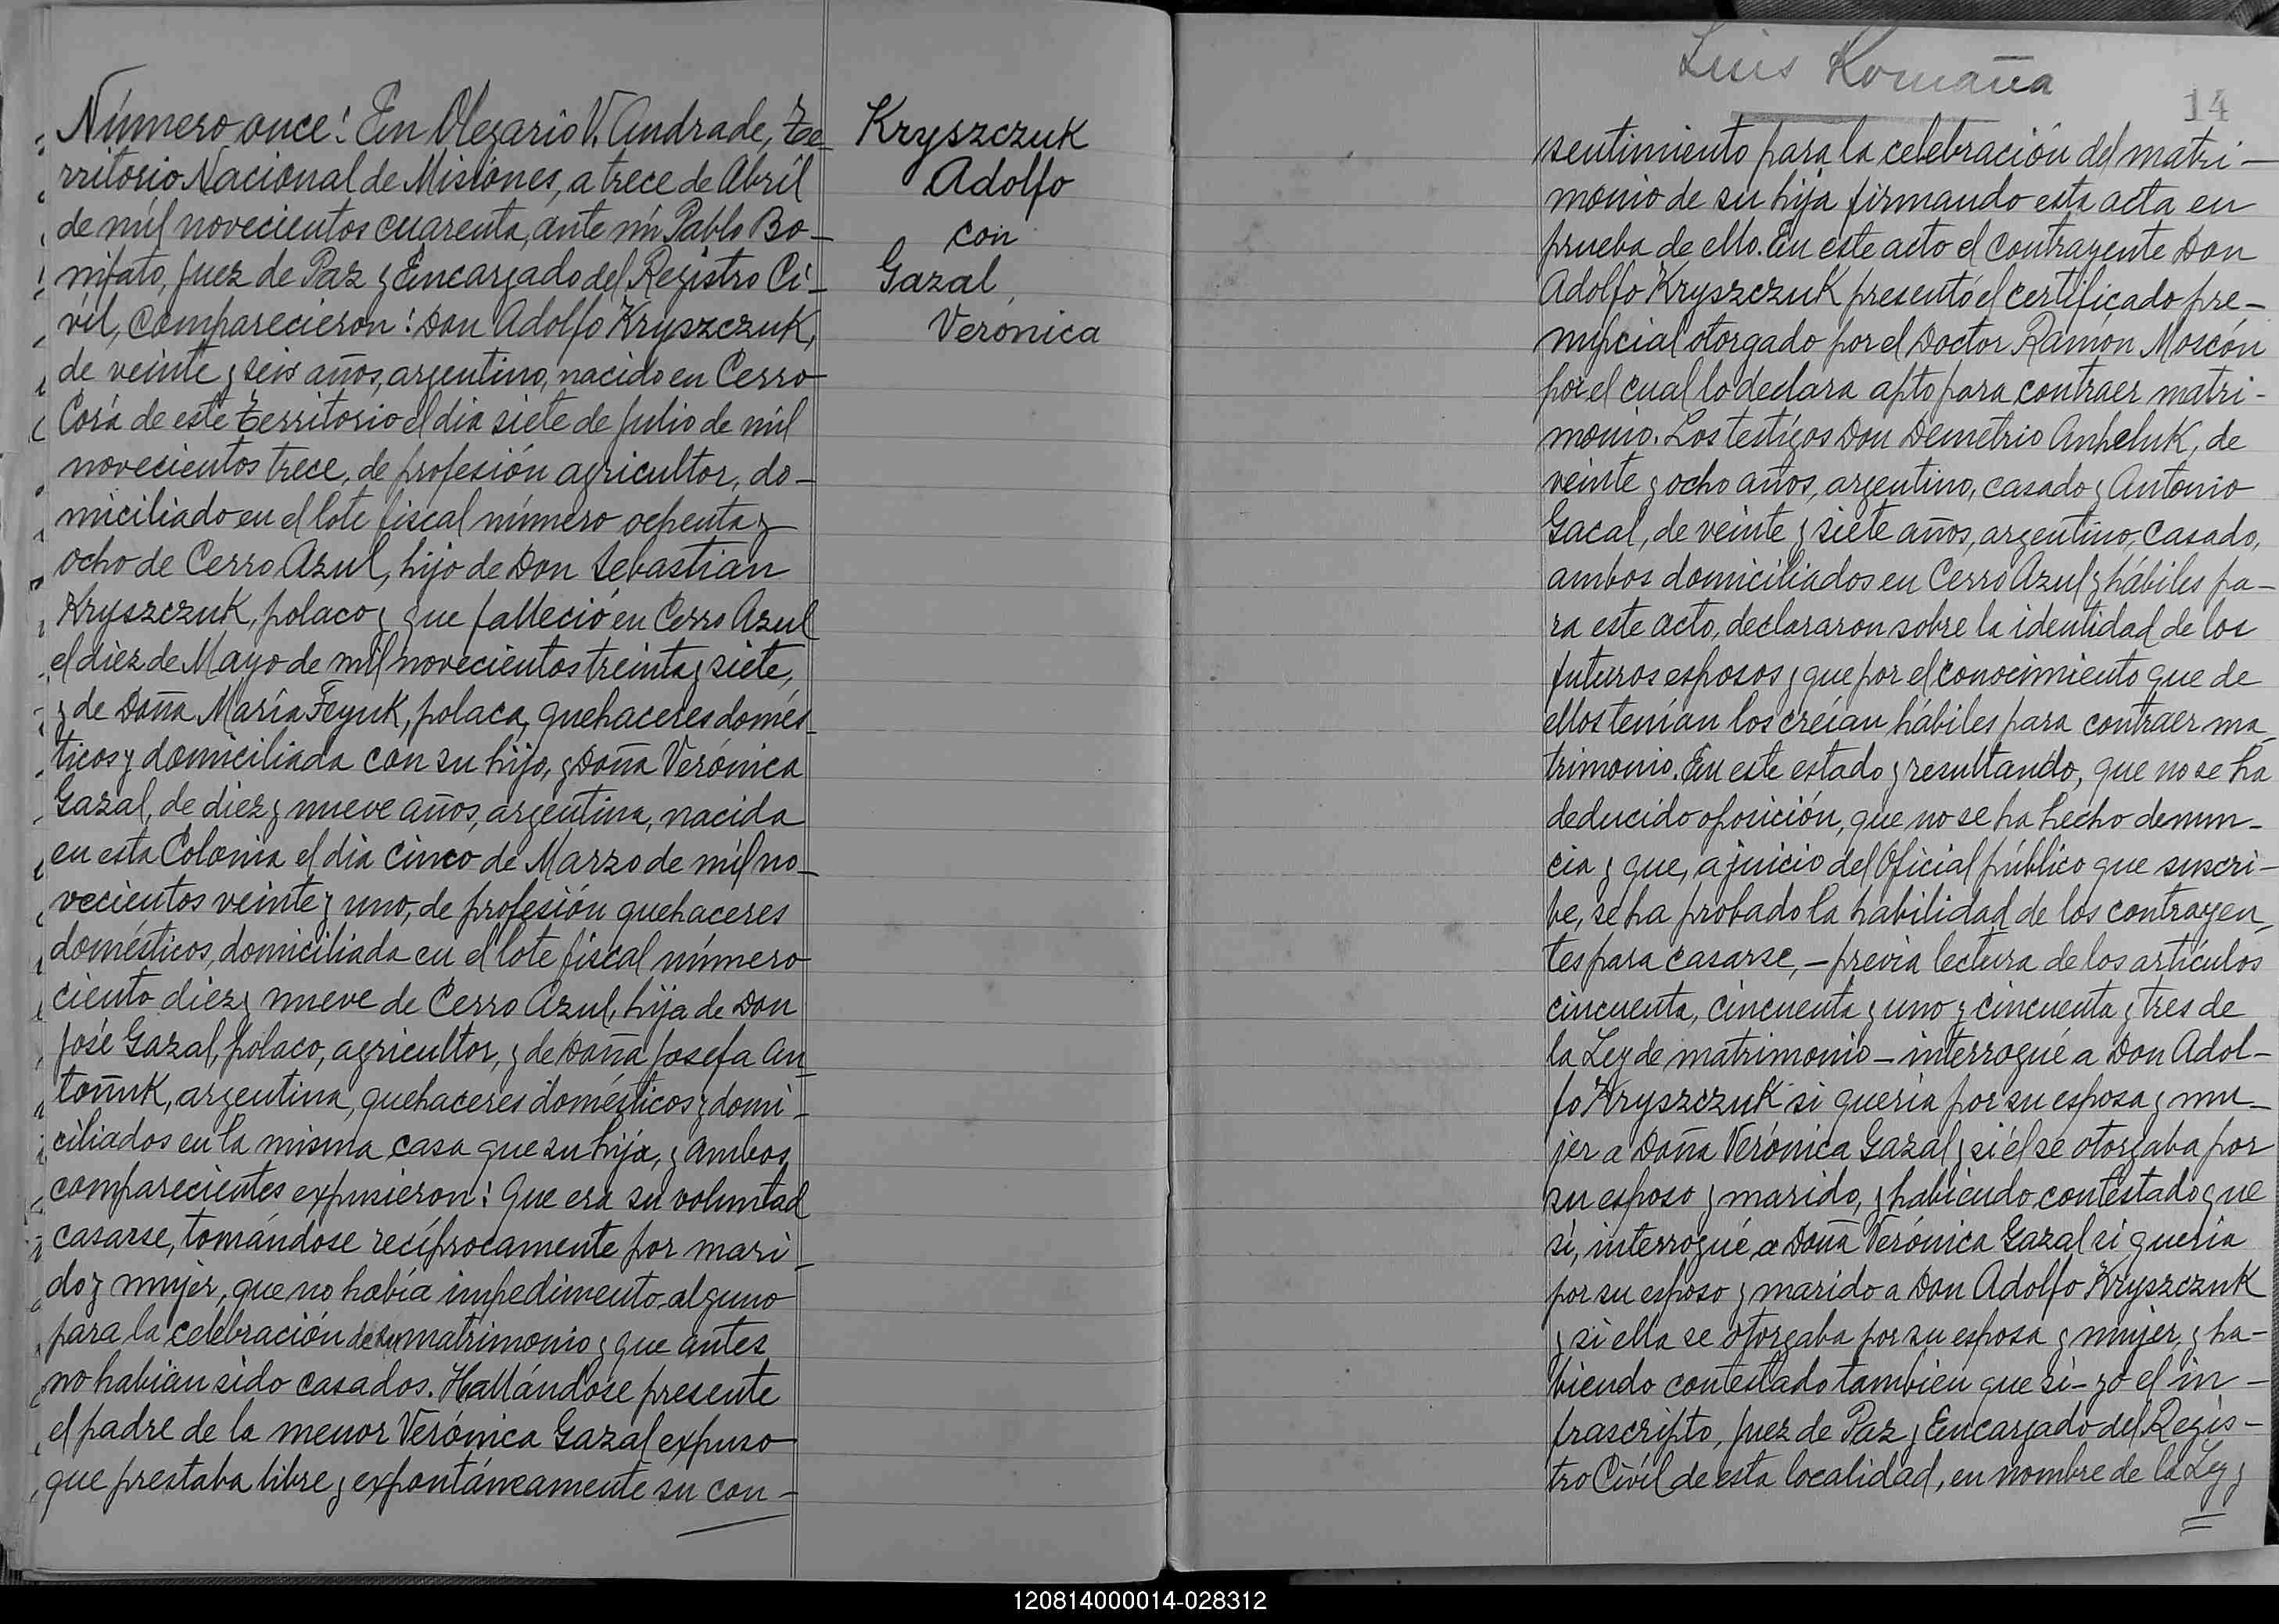 Número once: En Olegario V. Andrade, Te-
rritorio Nacional de Misiones, a trece de Abril
de mil novecientos cuarenta, ante mí Pablo Bo-
nifato, Juez de Paz y Encargado del Registro Ci-
vil, Comparecieron: Don Adolfo Kryszczuk,
de veinte y seis años, argentino, nacido en Cerro
Corá de este territorio el dia siete de Julio de mil
novecientos trece, de profesión agricultor, do-
miciliado en el lote fiscal número ochenta y
ocho de Cerro Azul, hijo de Don Sebastian
Kryszczuk, polaco y que falleció en Cerro Azul
el diez de Mayo de mil novecientos treinta y siete,
y de Doña María Feyuk, polaca, quehaceres domés-
ticos y domiciliada con su hijo, y Doña Verónica
Gazal, de diez y nueve años, argentina, nacida
en esta Colonia el dia cinco de Marzo de mil no-
vecientos veinte y uno, de profesión quehaceres
domésticos, domiciliada en el lote fiscal número
ciento diez y nueve de Cerro Azul, hija de Don
José Gazal, polaco, agricultor, y de Doña Josefa An-
toñuk, argentina, quehaceres domésticos y domi-
ciliados en la misma casa que su hija, y ambos
comparecientes expusieron: Que era su voluntad
casarse, tomándose recíprocamente por mari-
do y mujer, que no había impedimento alguno
para la celebración de su matrimonio y que antes
no habían sido casados. Hallándose presente
el padre de la menor Verónica Gazal expuso
que prestaba libre y expontáneamente su con-
Kryszczuk
Adolfo
con
Gazal,
Veronica
Luis Romaña
14
sentimiento para la celebración del matri-
monio de su hija firmando esta acta en
prueba de ello. En este acto el contrayente Don
Adolfo Kryszczuk presentó el certificado pre-
nupcial otorgado por el Doctor Ramón Moscón
por el cual lo declara apto para contraer matri-
monio. Los testigos Don Demetrio Anheluk, de
veinte y ocho años, argentino, casado y Antonio
Gacal, de veinte y siete años, argentino, casado,
ambos domiciliados en Cerro Azul y hábiles pa-
ra este acto, declararon sobre la identidad de los
futuros esposos y que por el conocimiento que de
ellos tenían los creían hábiles para contraer ma-
trimonio. En este estado y resultando, que no se ha
deducido oposición, que no se ha hecho denun-
cia y que, a juicio del Oficial público que suscri-
be, se ha probado la habilidad de los contrayen-
tes para casarse, - previa lectura de los artículos
cincuenta, cincuenta y uno y cincuenta y tres de
la Ley de matrimonio - interrogué a Don Adol-
fo Kryszczuk si quería por su esposa y mu-
jer a Doña Verónica Gazal y si él se otorgaba por
su esposo y marido, y habiendo contestado que
sí, interrogué a Doña Verónica Gazal si quería
por su esposo y marido a Don Adolfo Kryszczuk
y si ella se otorgaba por su esposa y mujer, y ha-
biendo contestado tambien que sí - yo el in-
frascripto, Juez de Paz y Encargado del Regis-
tro Civil de esta localidad, en nombre de la Ley y
120814000014-028312